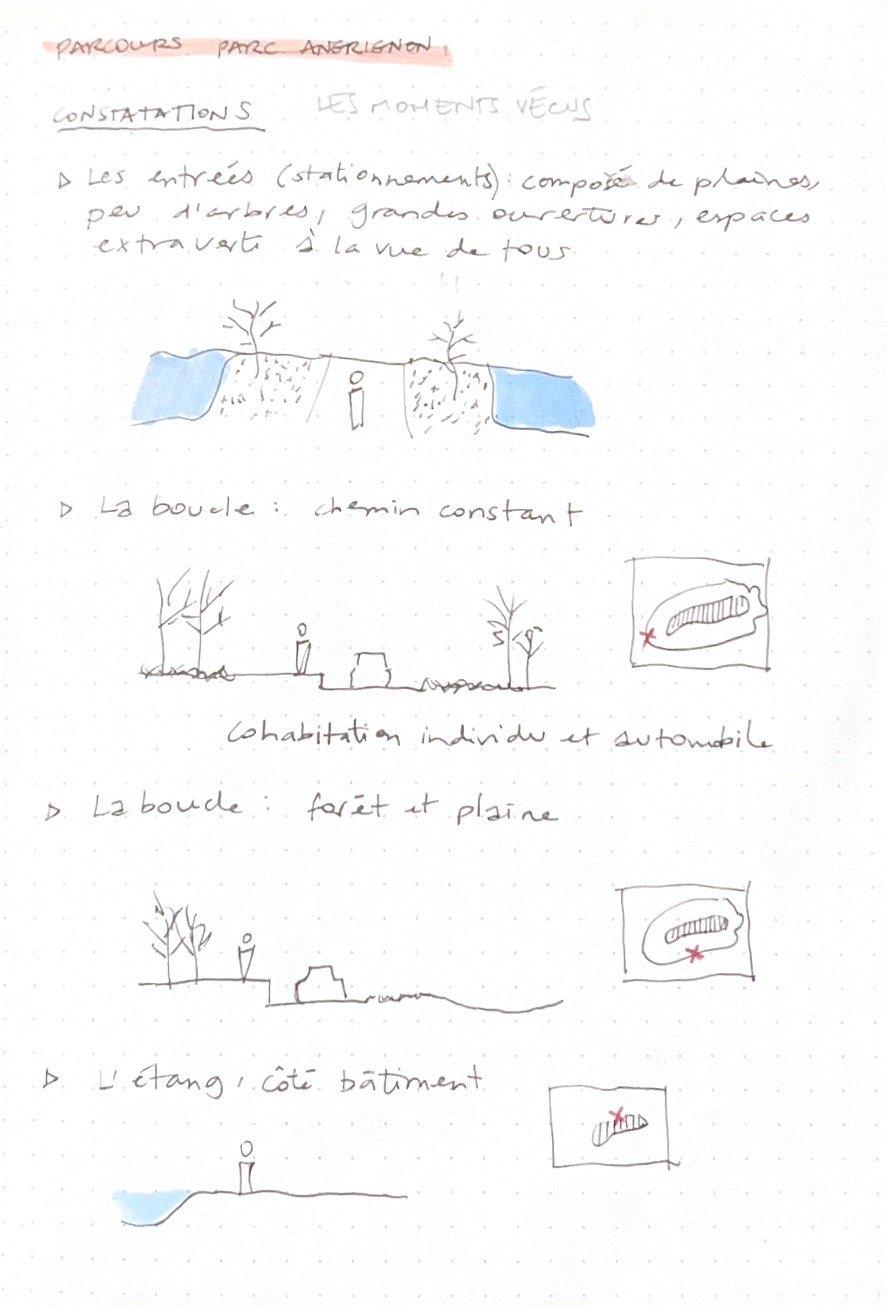 PARCOURS PARC ANGRIGNON.
CONSTATATIONS LES MOMENTS VÉCUS
▷ Les entrées (stationnements) : composé de plaines,
peu d'arbres, grandes ouvertures, espaces
extraverti à la vue de tous
▷ La boucle : chemin constant
cohabitation individu et automobile
▷ La boucle : forêt et plaine
▷ L'étang, côté bâtiment